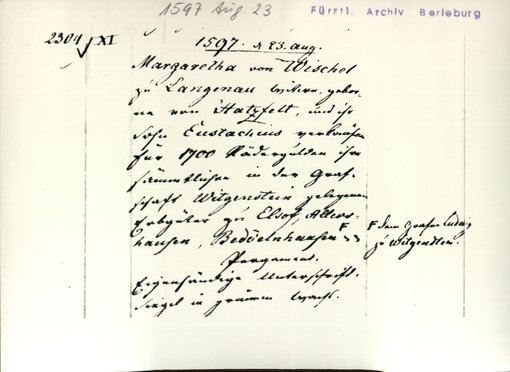 1597 Aug. 23
Fürstl. Archiv Berleburg
2304 XI
1597. d 23. aug.
Margaretha von Wischel
zu Langenau Witwe, gebor-
ne von Hatzfelt, und ihr
Sohn Eustachius verkaufen
für 1700 Rädergulden ihre
sämmtlichen in der Graf-
schaft Witgenstein gelegenen
Erbgüter zu Elsof, Alerts-
hausen, Beddelnhausen F
F dem Grafen Ludwig
zu Witgenstein.
Pergament.
Eigenhändige Unterschrift.
Siegel in grünem Wachs.